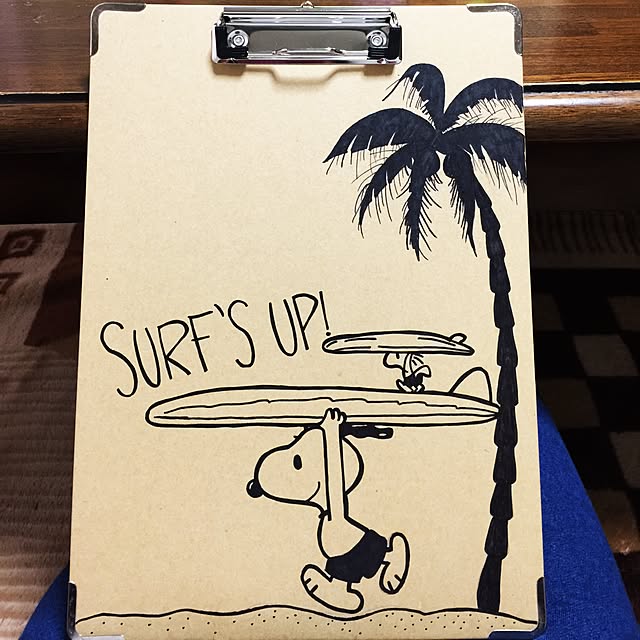 SURF'S UP!